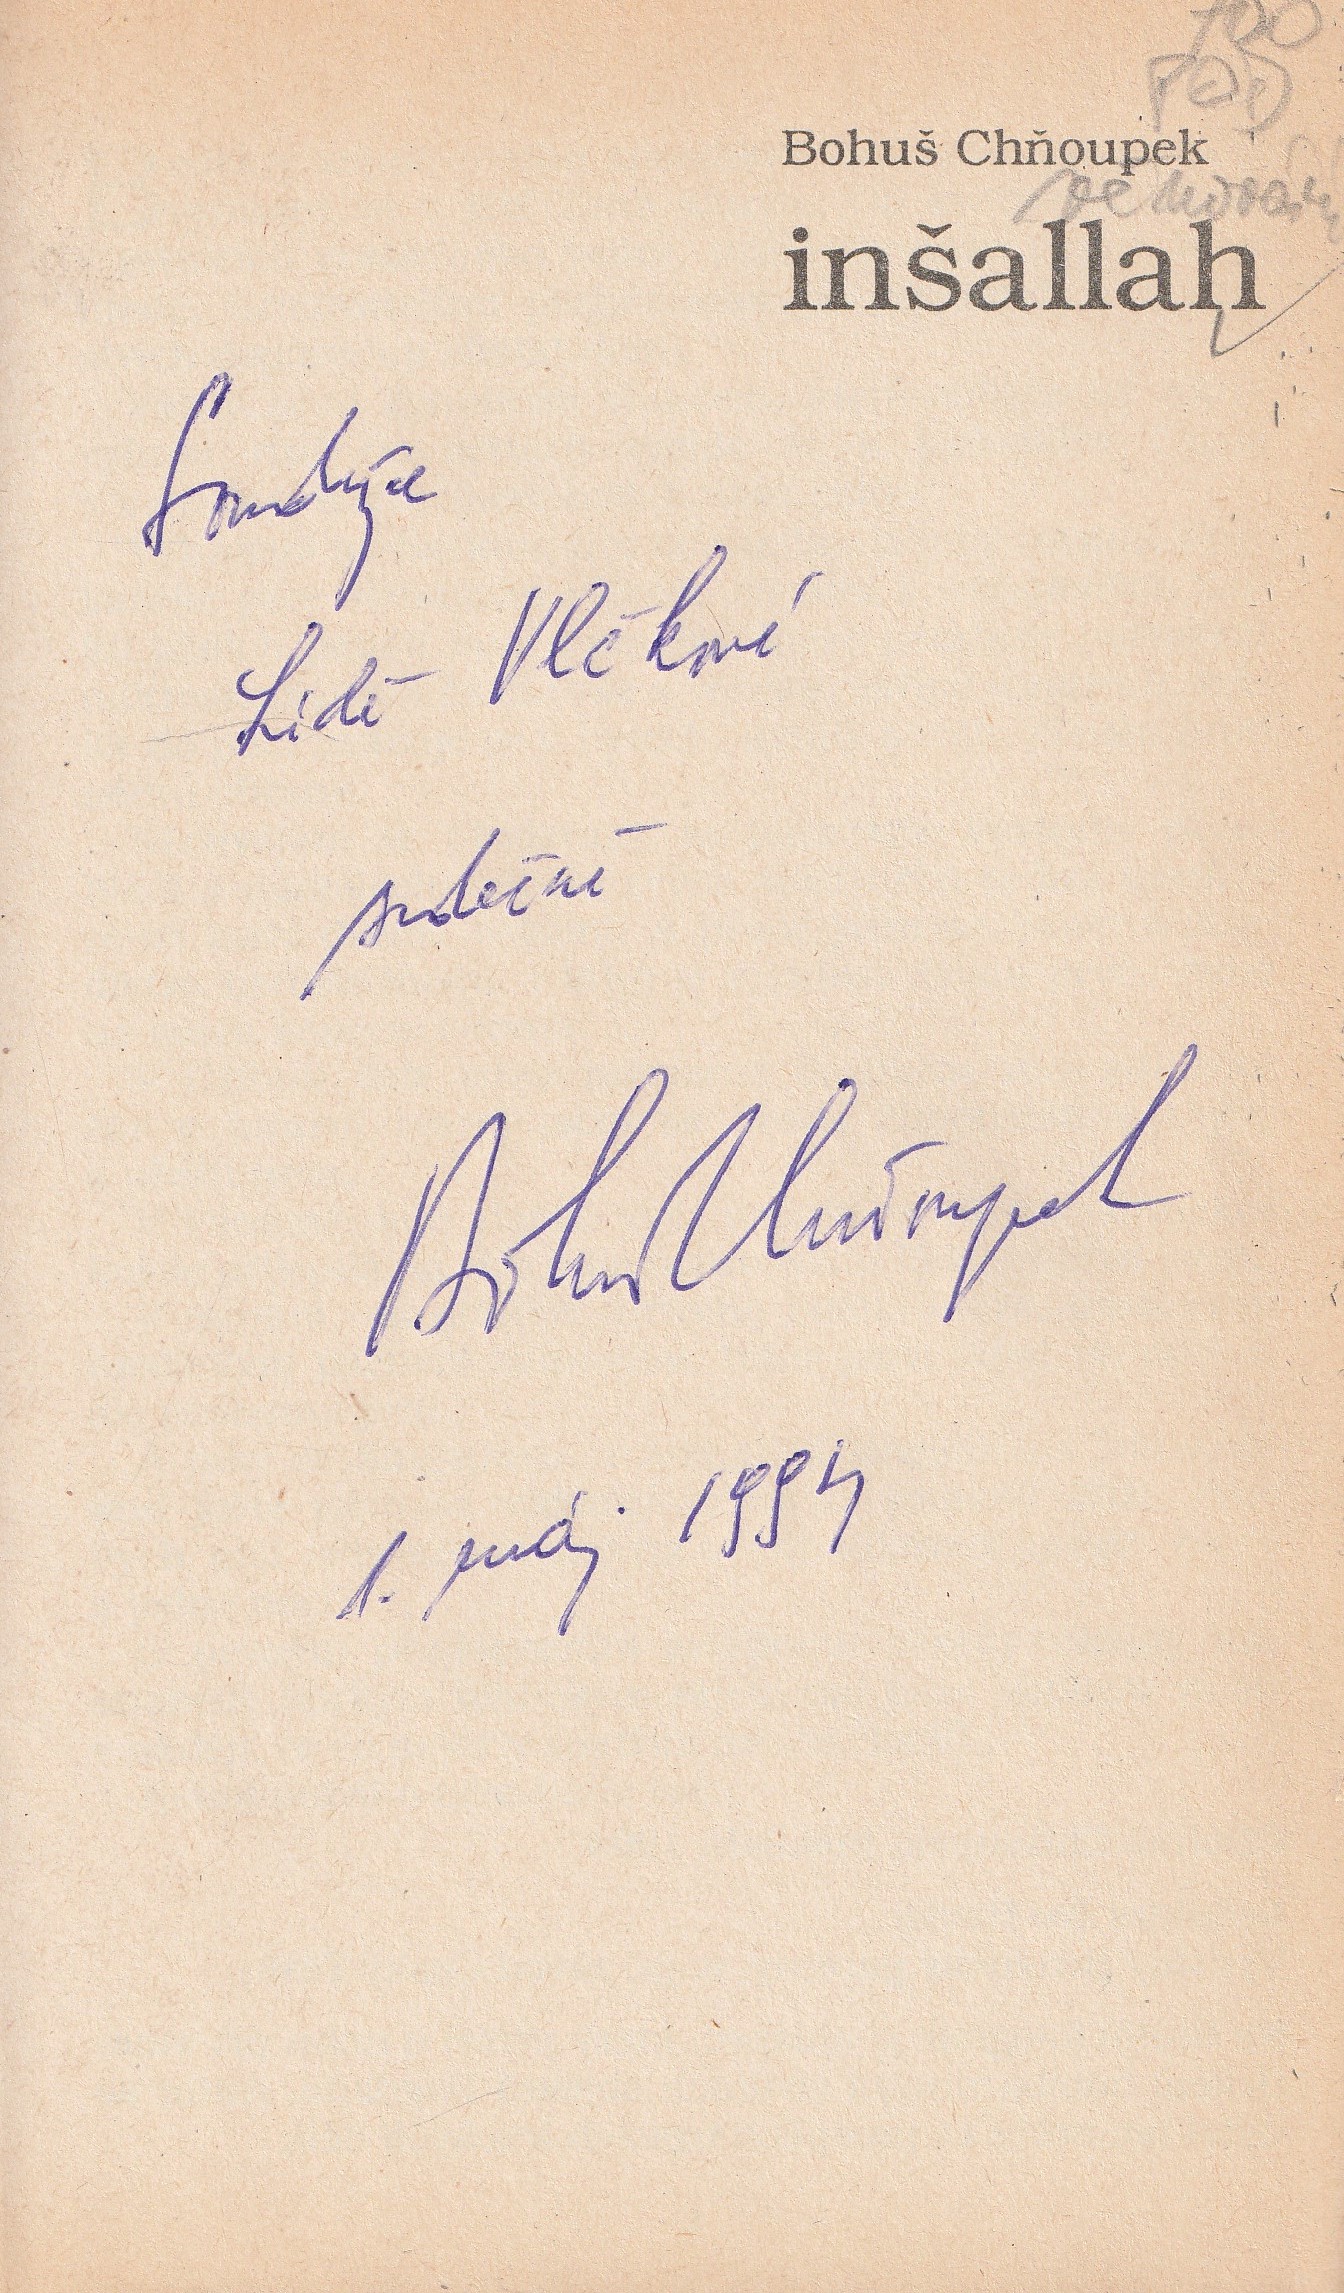 700
Bohuš Chňoupek
inšallah
Soudružce
Lídě Vlčkové
srdečně
Bohuš Chňoupek
1. máj 1994